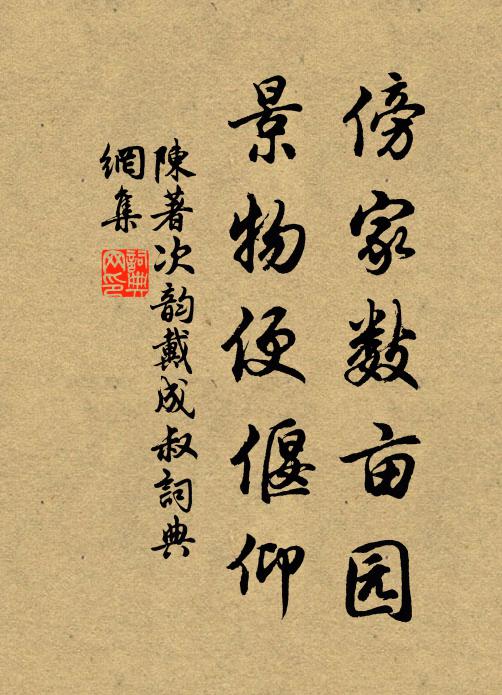 傍家数亩园
景物便偃仰
陳著次韵戴成叔詞典
網集
詞典
网印